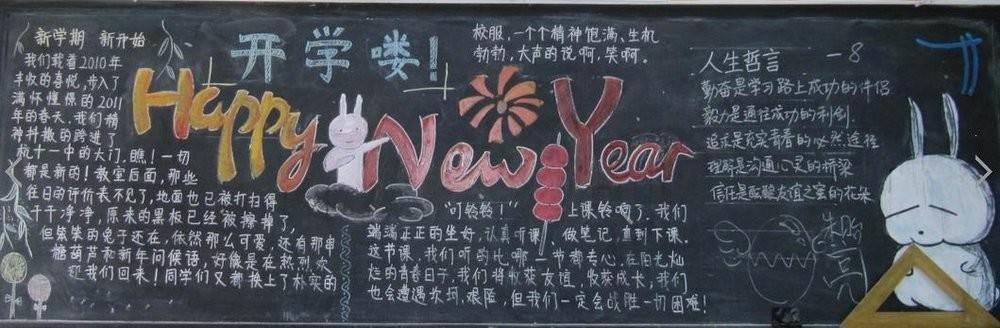 新学期 新开始
我们载着2010年
丰收的喜悦,步入了
满怀憧憬的2011
年的春天,我们精
神抖擞的跨进了
杭十一中的大门,瞧!一切
都是新的!教室后面,那些
往日的评价表不见了,地面也已被打扫得
干干净净,原来的黑板已经被擦掉了,
但朱朱的兔子还在,依然那么可爱,还有那串
糖葫芦和新年问候语,好像是在热烈欢
迎我们回来!同学们又都换上了朴实的
开学喽!
Happy New Year
校服,一个个精神饱满、生机
勃勃,大声的说啊,笑啊。
"叮铃铃!"上课铃响了,我们
端端正正的坐好,认真听课、做笔记,直到下课。
这节课,我们听的比哪一节都专心,在阳光灿
烂的青春日子,我们将收获友谊,收获成长;我们
也会遭遇坎坷、艰险,但我们一定会战胜一切困难!
人生哲言 —8
勤奋是学习路上成功的伴侣
毅力是通往成功的利剑
追求是充实青春的必然途径
理解是沟通心灵的桥梁
信任是照耀友谊之窗的花朵